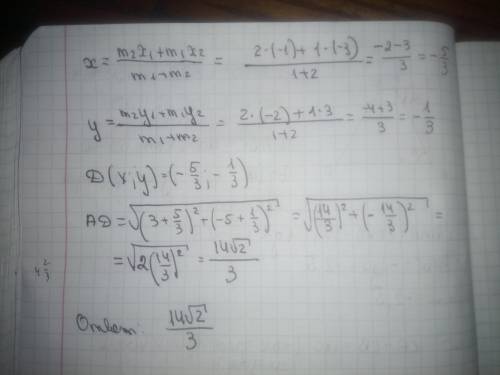 x = (m₂x₁+m₁x₂)/(m₁+m₂) = (2·(-1)+1·(-3))/(1+2) = (-2-3)/3 = -5/3
y = (m₂y₁+m₁y₂)/(m₁+m₂) = (2·(-2)+1·3)/(1+2) = (-4+3)/3 = -1/3
D(x;y)=(-5/3; -1/3)
AD = √((3+5/3)²+(-5+1/3)²) = √((14/3)²+(-14/3)²) =
4 2/3
= √(2(14/3)²) = 14√2/3
Ответ: 14√2/3